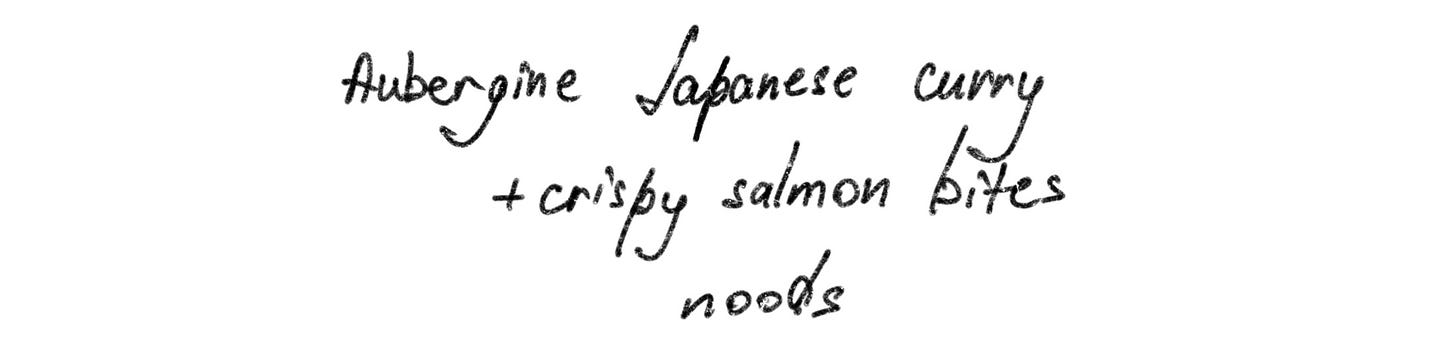 Aubergine Japanese curry
+ crispy salmon bites
noods